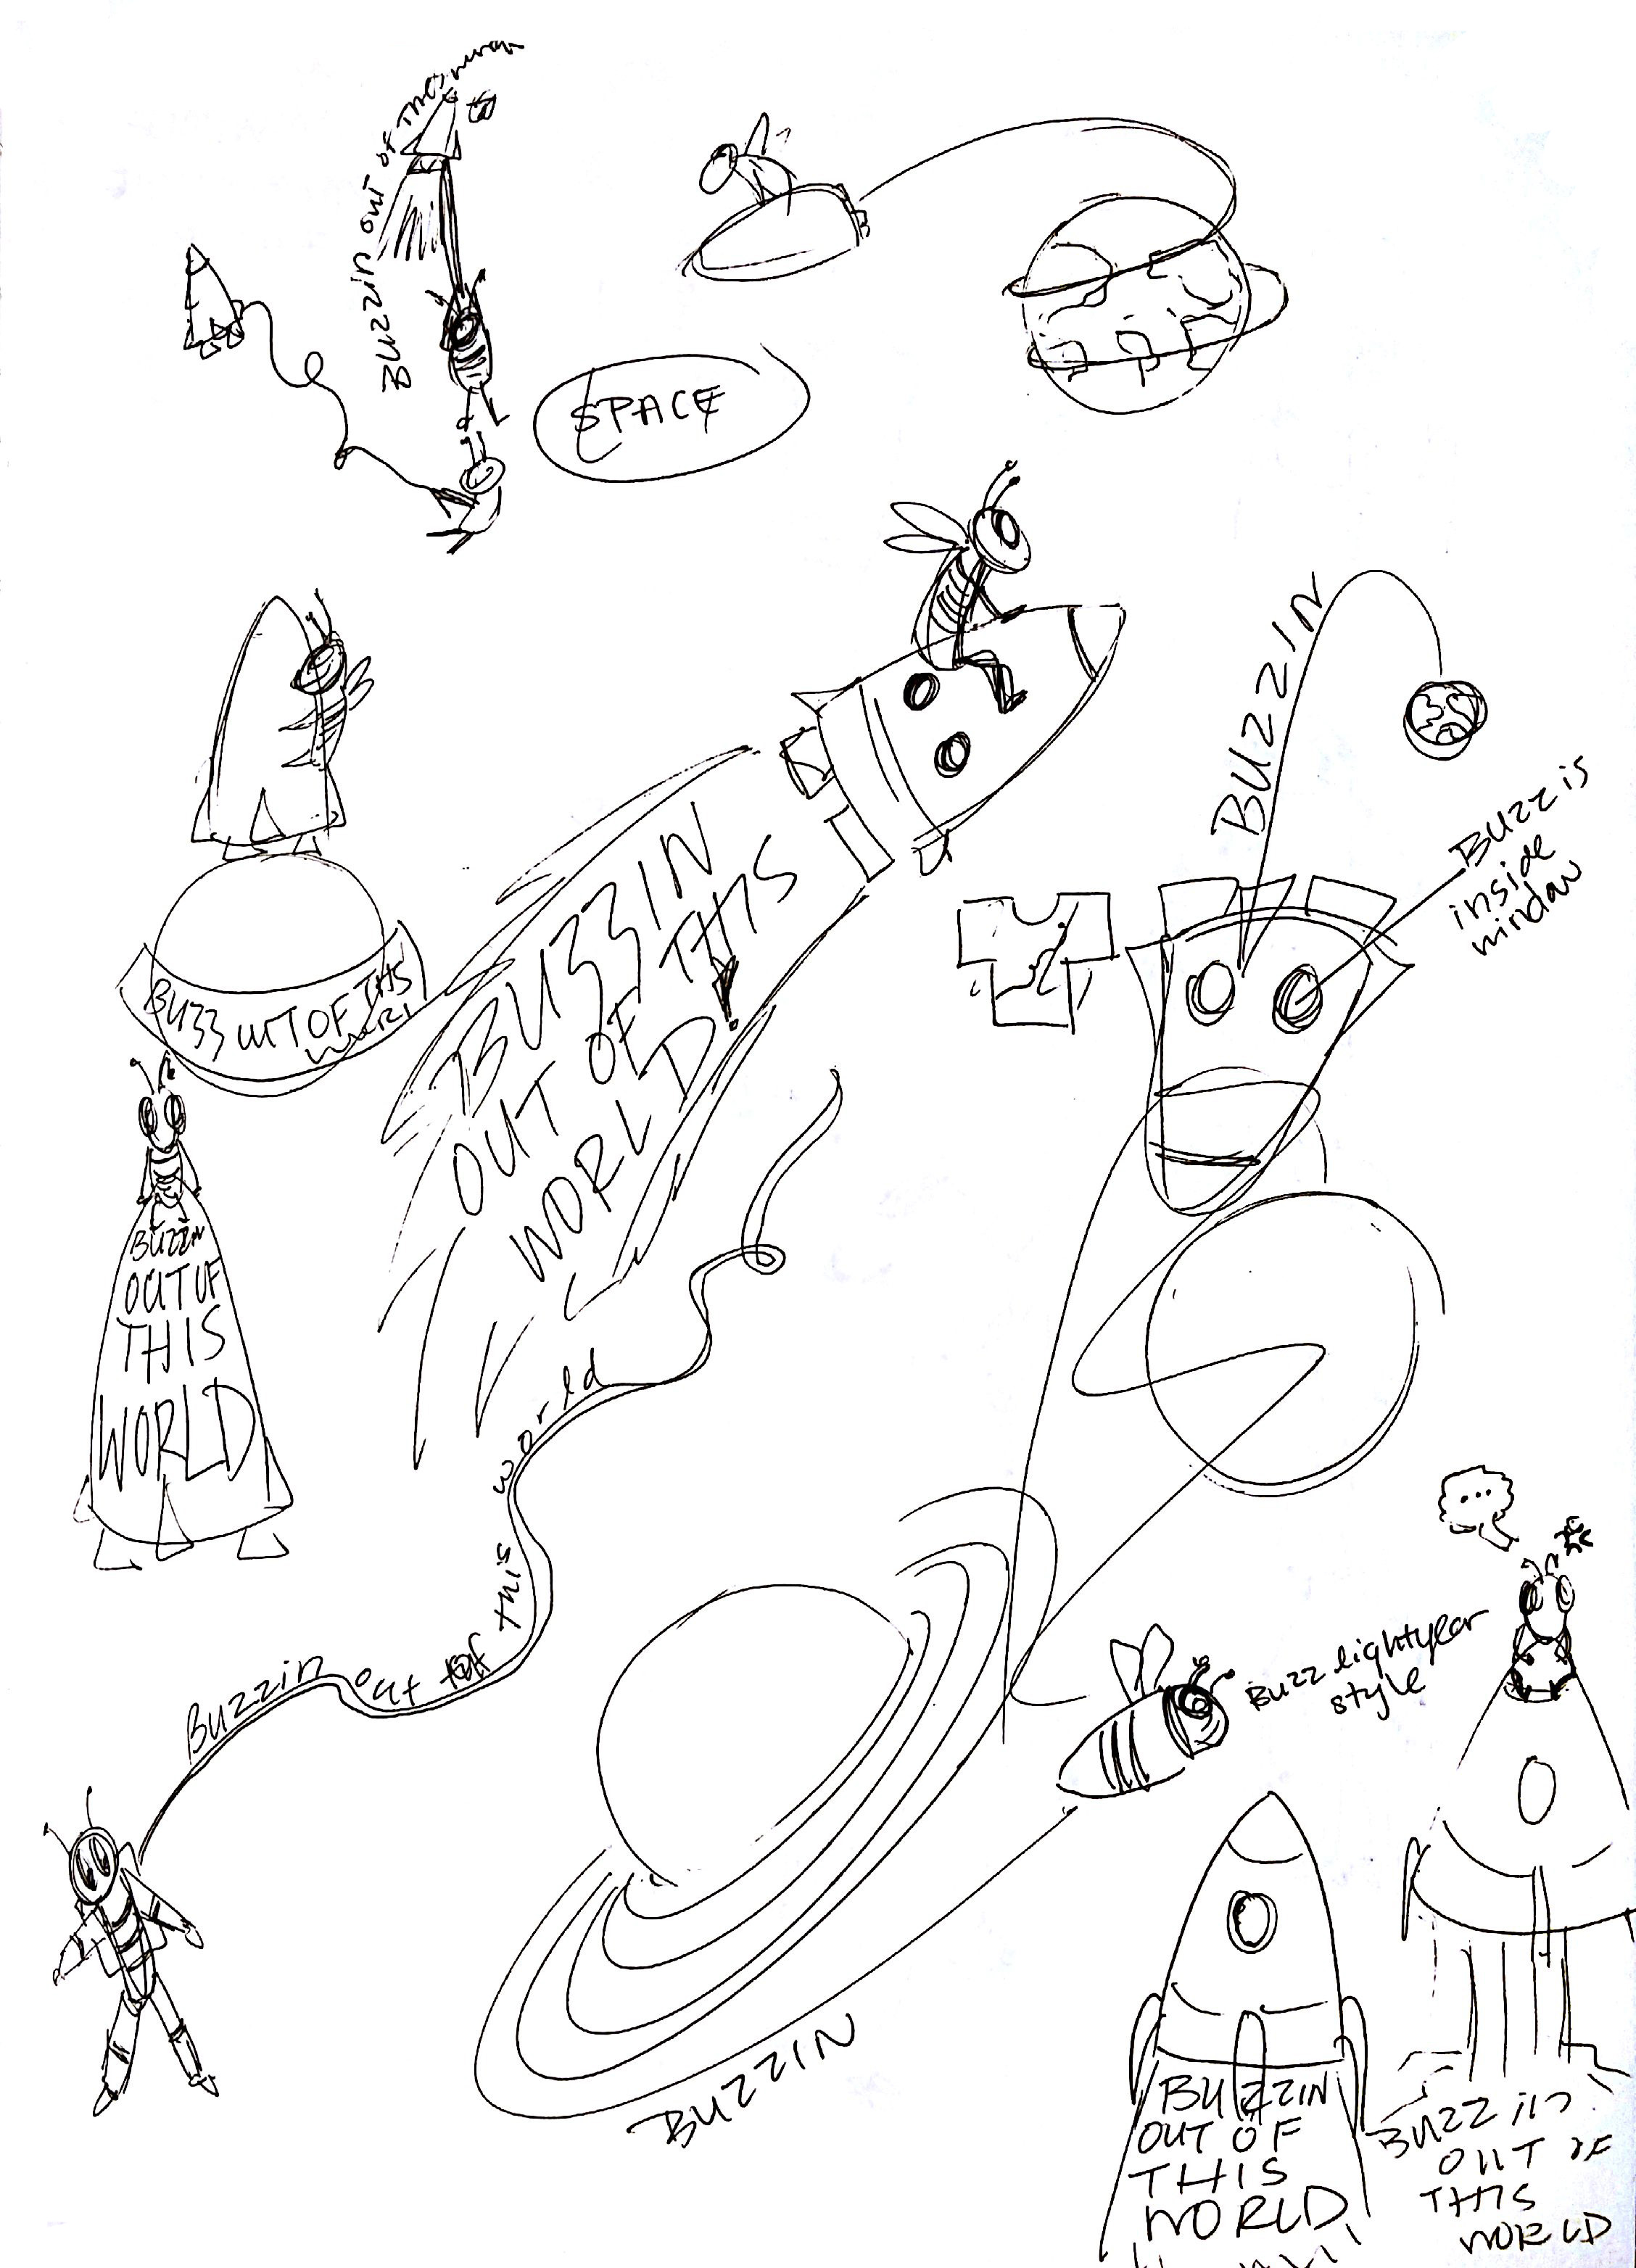 Buzzin out of this
SPACE
BUZZIN
Buzz is
inside
window
BUZZIN
OUT OF THIS
WORLD!
BUZZ OUT OF THIS
WORL
BUZZIN
OUT OF
THIS
WORLD
Buzzin out of this world
Buzz lightyear
style
BUZZIN
BUZZIN
OUT OF
THIS
WORLD
BUZZIN
OUT OF
THIS
WORLD